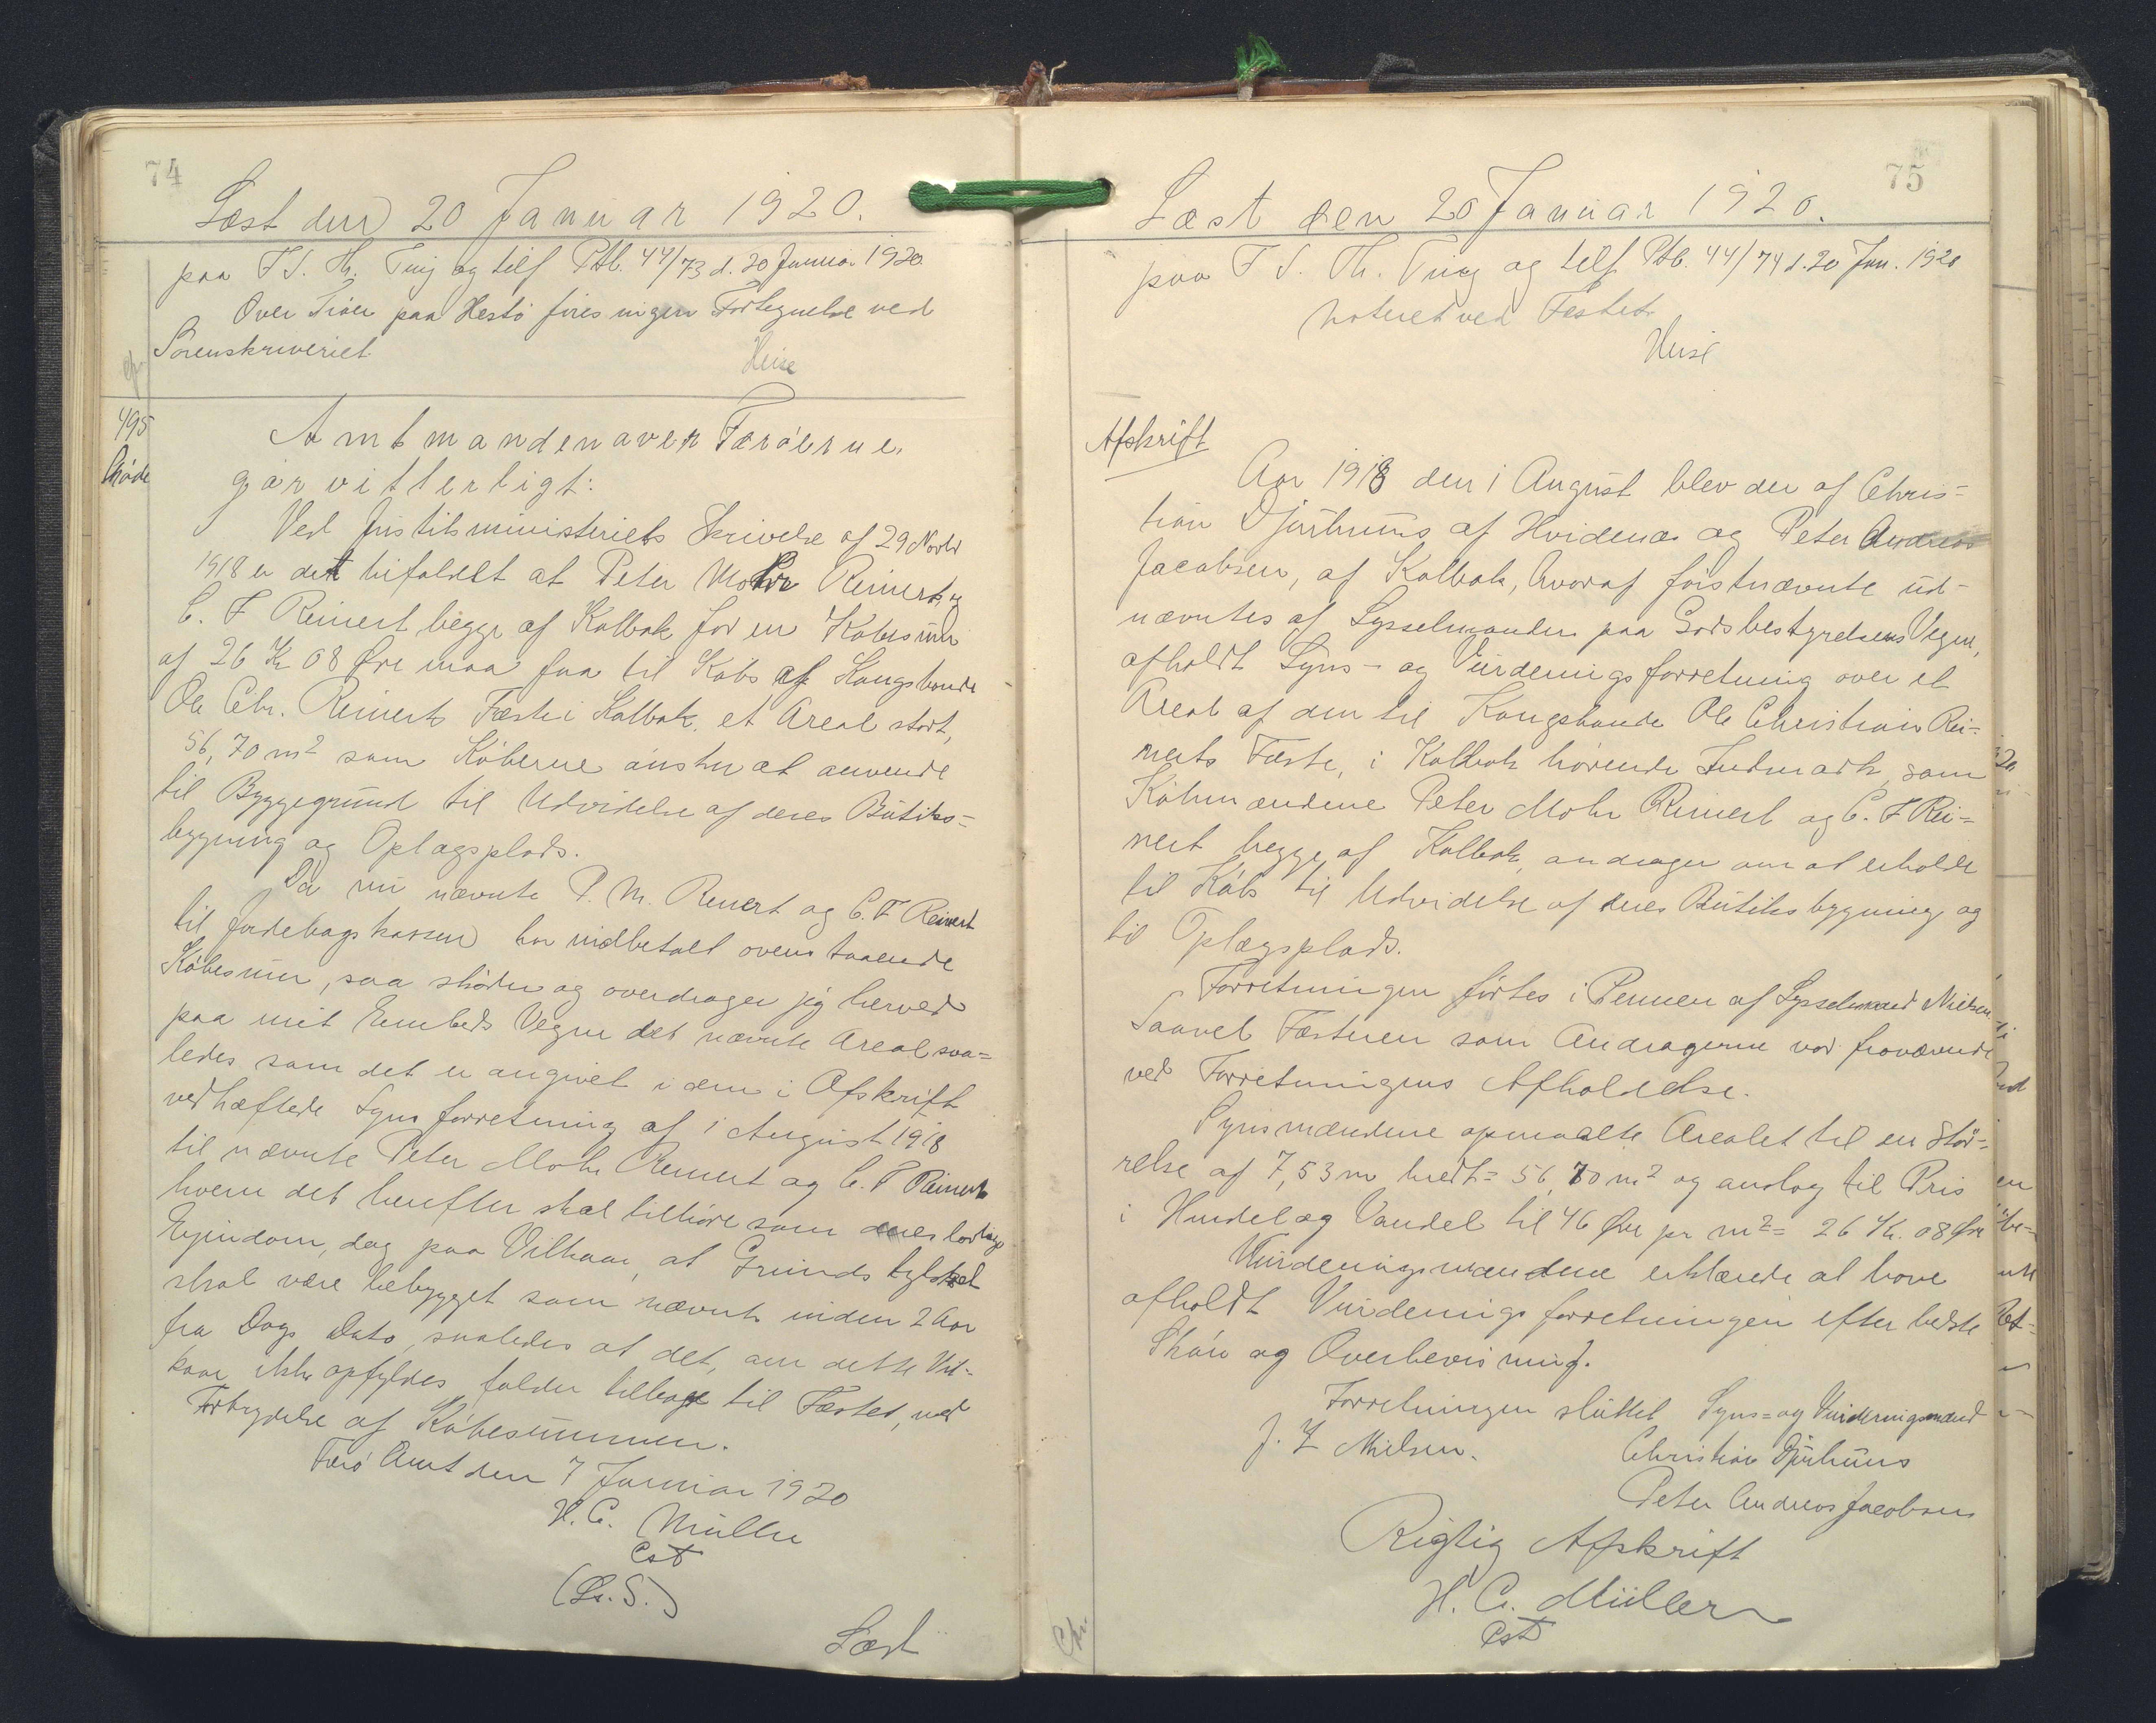 74
Læst den 20 Januar 1920.
paa F S. Th. Ting og tilf Ptb. 44/73 d. 20 Januar 1920
Over Tróer paa Hestø føres ingen Fortegnelse ved
Sorenskriveriet.
Heise
495
Skøde
Amtmanden over Færøerne,
gør vitterligt:
Ved Justitsministeriets Skrivelse af 29 Novbr
1918 er det bifaldet at Peter Mohr Reinert og
C. F Reinert begge af Kalbak for en Købesum
af 26 Kr 08 Øre maa faa til Købs af Kongsbonde
Ole Chr. Reinerts Fæste i Kalbak, et Areal stort,
56,70 m² som Køberne ønsker at anvende
til Byggegrund til Udvidelse af deres Butiks-
bygning og Oplagsplads.
Da nu nævnte P. M. Reinert og C. F Reinert
til Jordebogskassen har indbetalt ovenstaaende
Købesum, saa skøder og overdrager jeg herved
paa mit Embeds Vegne det nævnte Areal saa-
ledes som det er angivet i den i Afskrift
vedhæftede Synsforretning af 1 August 1918
til nævnte Peter Mohr Reinert og C. F Reinert
hvem det herefter skal tilhøre som deres lovlige
Ejendom, dog paa Vilkaar, at Grundstykket
skal være bebygget som nævnt inden 2 Aar
fra Dags Dato, saaledes at det, om dette Vil-
kaar ikke opfyldes falder tilbage til Fæstet, mod
Forbrydelse af Købesummen.
Færø Amt den 7 Januar 1920
H. C. Müller
Cst
(L. S.)
Læst
75
Læst den 20 Januar 1920.
paa F S. Th. Ting og tilf Ptb. 44/74 d. 20 Jan. 1920
Noteret ved Fæstet.
Heise
Afskrift
Aar 1918 den 1 August blev der af Chris-
tian Djurhuus af Hvidenæs og Peter Andreas
Jacobsen, af Kalbak, hvoraf førstnævnte ud-
nævntes af Sysselmanden paa Godsbestyrelsens Vegne,
afholdt Syns- og Vurderingsforretning over et
Areal af den til Kongsbonde Ole Christian Rei-
nerts Fæste, i Kalbak hørende Indmark, som
Købmændene Peter Mohr Reinert og C. F Rei-
nert begge af Kalbak, andrager om at erholde
til Købs til Udvidelse af deres Butiksbygning og
til Oplagsplads.
Forretningen førtes i Pennen af Sysselmand Nielsen.
Saavel Fæsteren som Andragerne var fraværende
ved Forretningens Afholdelse.
Synsmændene opmaalte Arealet til en Stør-
relse af 7,53 m bredt = 56,70 m² og ansloeg til Pris
i Handel og Vandel til 46 Øre pr m² = 26 Kr. 08 Øre
Vurderingsmændene erklærede at have
afholdt Vurderingsforretningen efter bedste
Skøn og Overbevisning.
Forretningen sluttet Syns- og Vurderingsmænd
J. Z Nielsen. Christian Djurhuus
Peter Andreas Jacobsen
Rigtig Afskrift
H. C. Müller
Cst